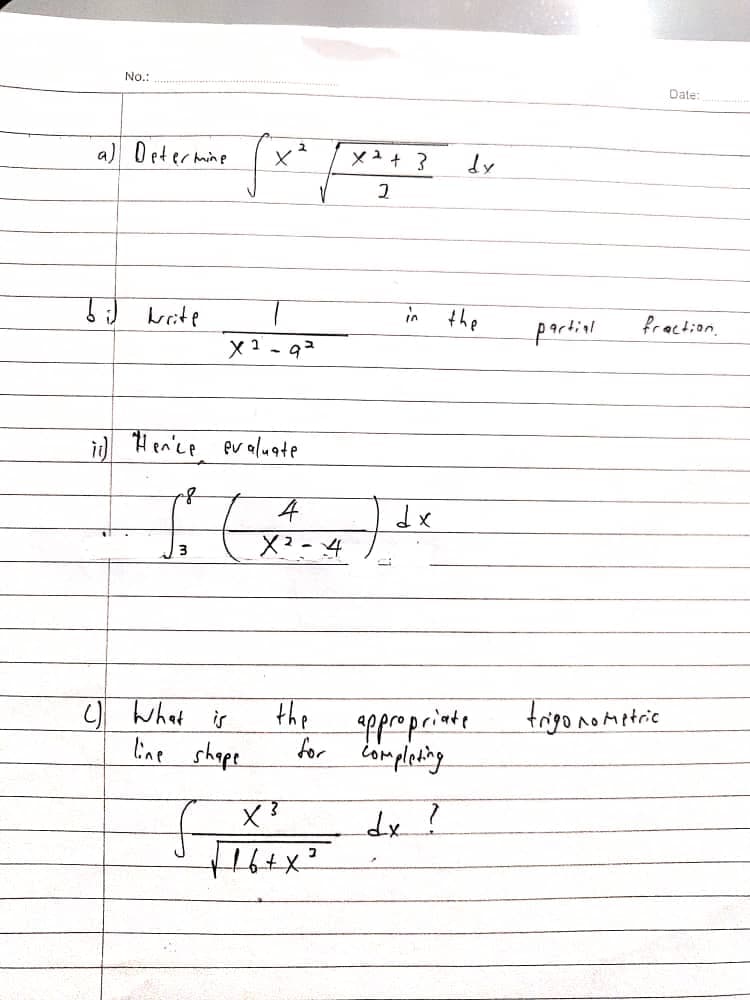 No.:
Date:
a) Determine ∫ x² √((x² + 3)/2) dx
b i) Write 1/(x² - a²) in the partial fraction.
ii) Hence, evaluate
∫₃⁸ (4/(x² - 4)) dx
c) What is the appropriate trigonometric
line shape for completing
∫ x³/√(16 + x²) dx ?